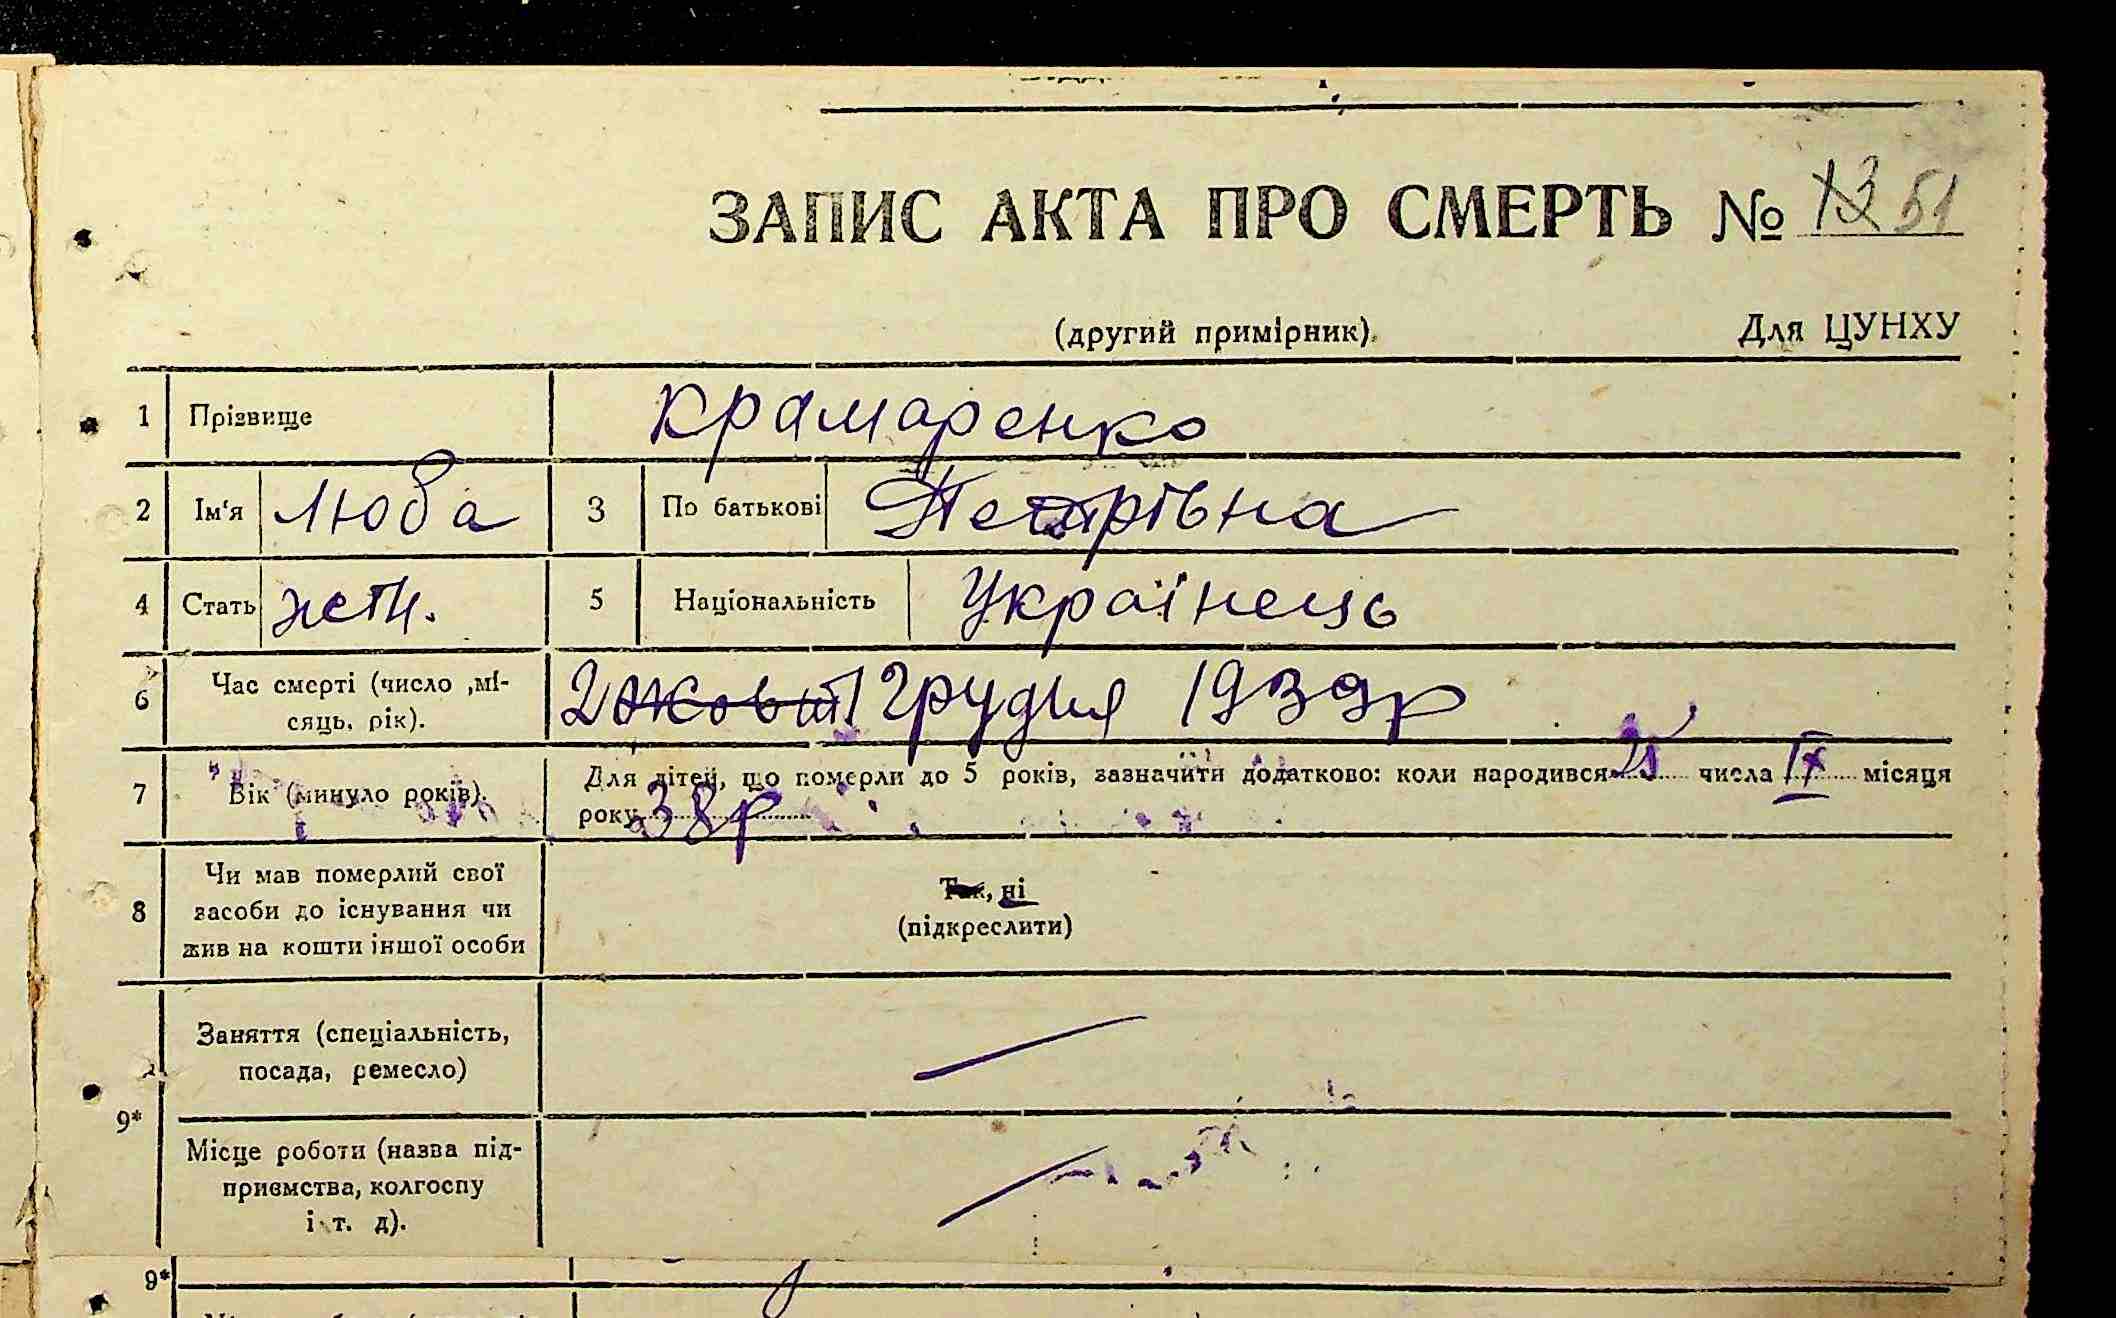 ЗАПИС АКТА ПРО СМЕРТЬ № 13 51
(другий примірник). Для ЦУНХУ
1 Прізвище Крамаренко
2 Ім'я Люба 3 По батькові Петрівна
4 Стать жен. 5 Національність Українець
6 Час смерті (число ,мі-
сяць, рік). 2 жовт Грудня 1939р
7 Вік (минуло років). Для дітей, що померли до 5 років, зазначити додатково: коли народився 25 числа IX місяця
року 38р
8 Чи мав померлий свої
засоби до існування чи
жив на кошти іншої особи
Так, ні
(підкреслити)
9* Заняття (спеціальність,
посада, ремесло)
Місце роботи (назва під-
приємства, колгоспу
і т. д).
9*